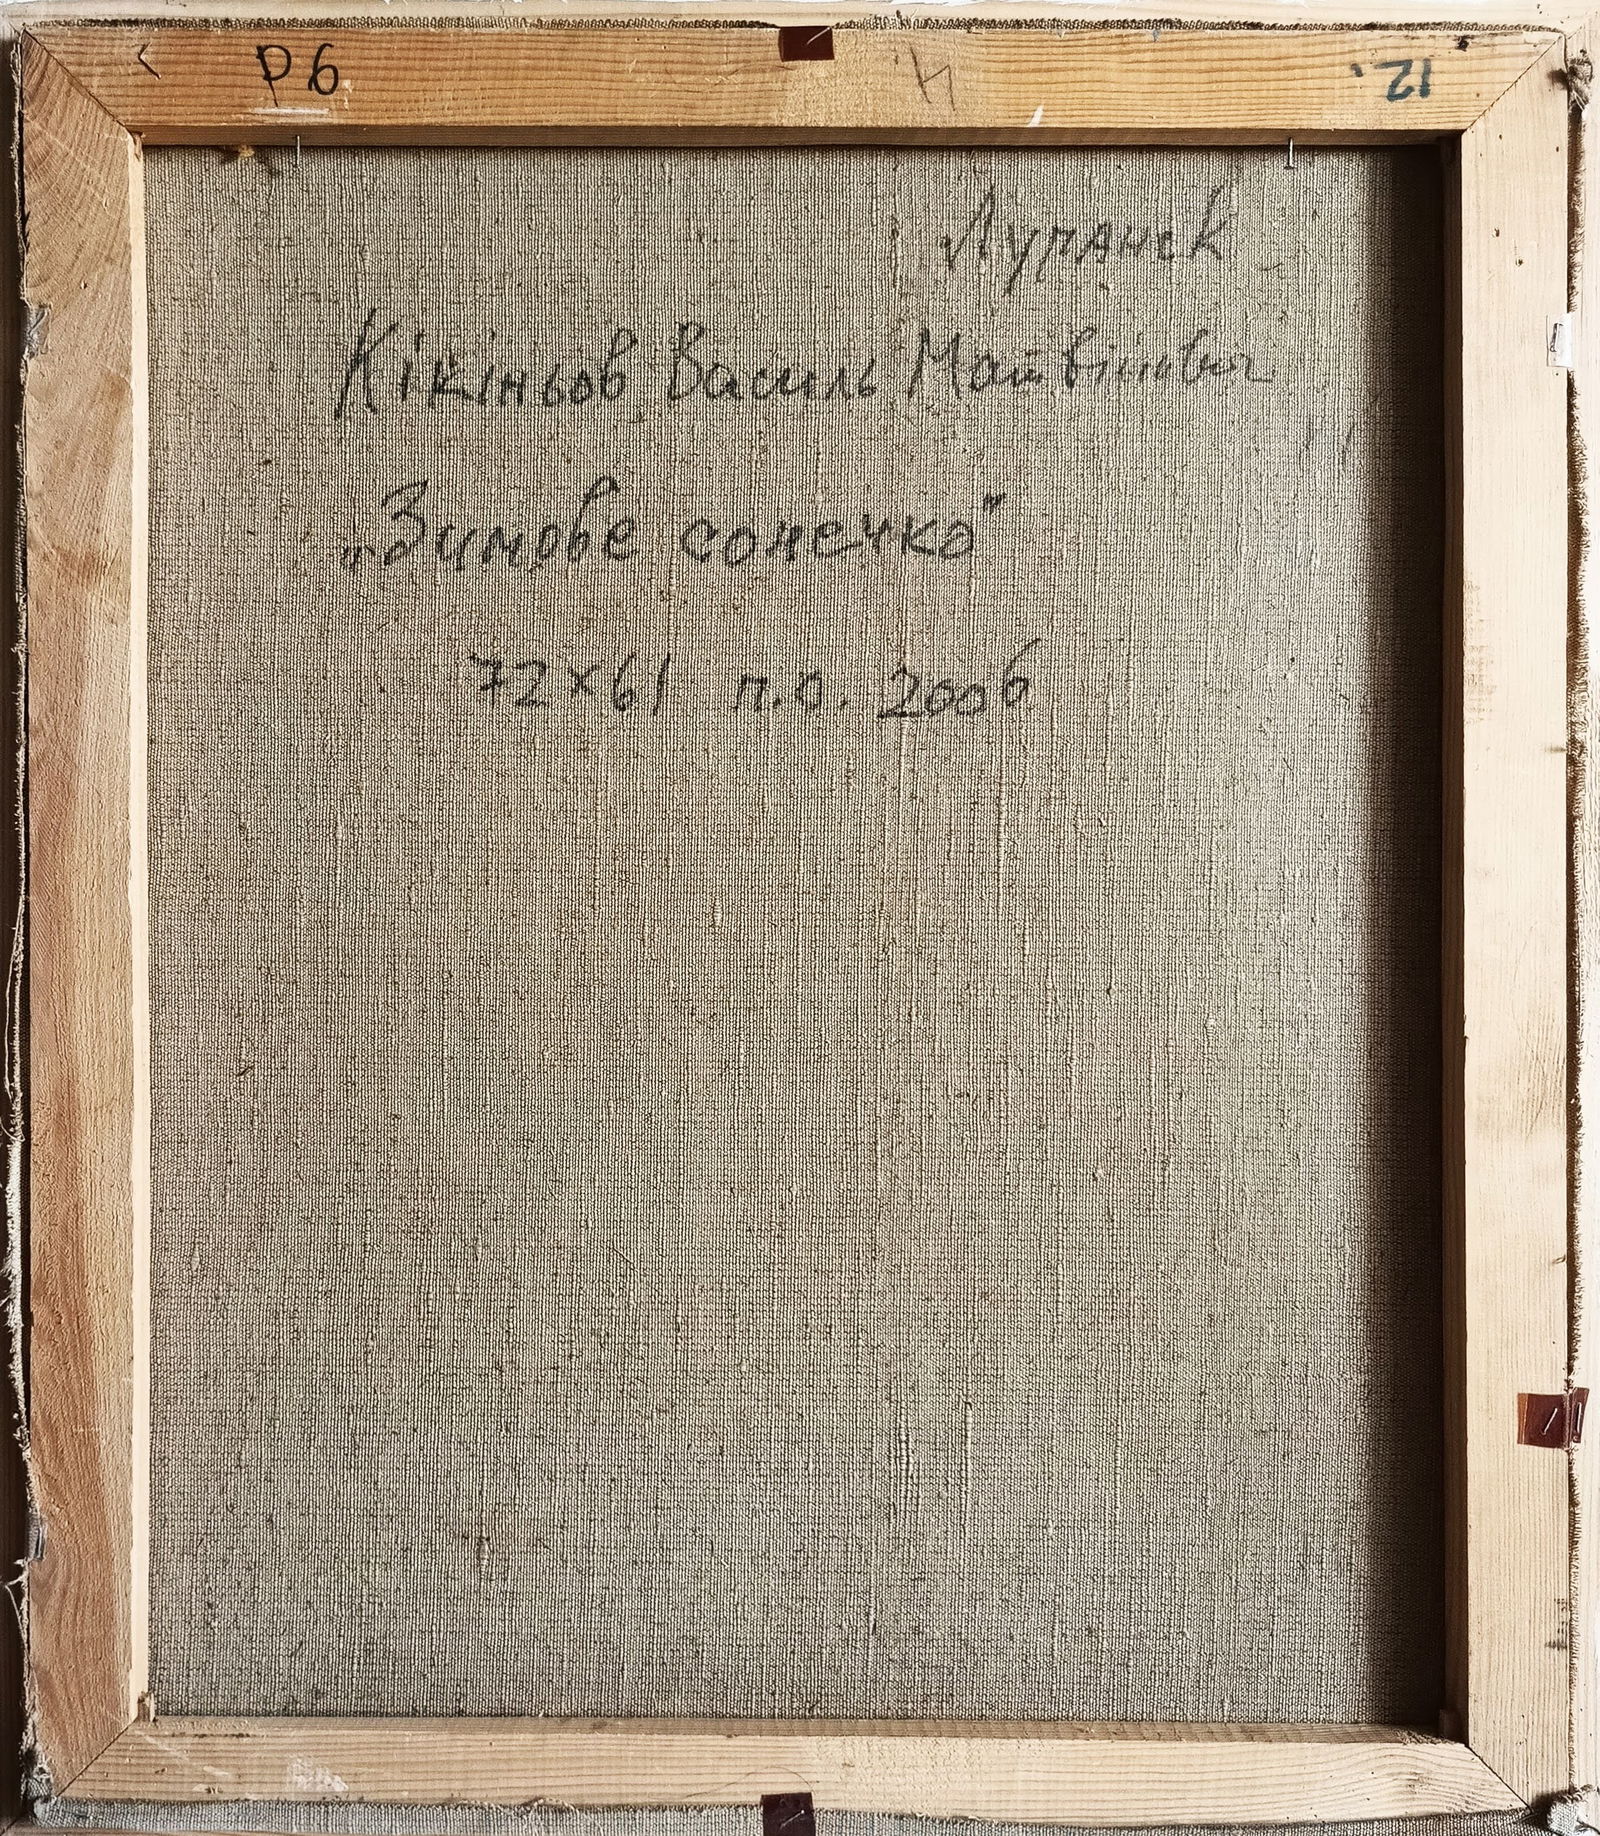 Р6
12.
Луганск
Кікіньов Василь Матвійович
„Зимове сонечко"
72×61 п.о. 2006